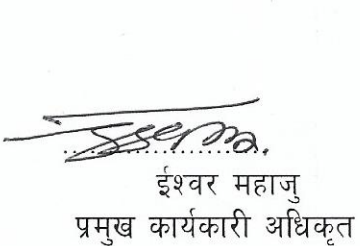 ईश्वर महाजु
प्रमुख कार्यकारी अधिकृत